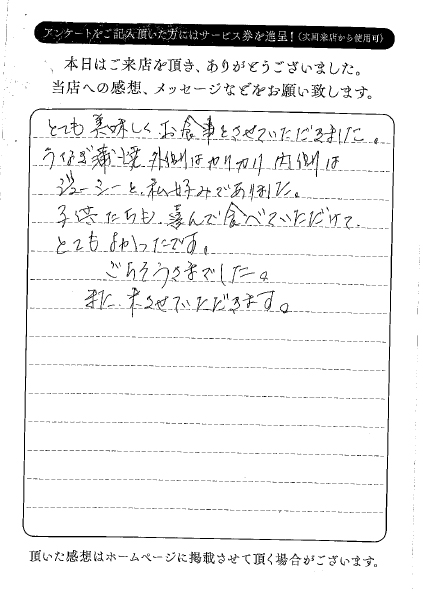 アンケートをご記入頂いた方にはサービス券を進呈！(次回来店から使用可)
本日はご来店を頂き、ありがとうございました。
当店への感想、メッセージなどをお願い致します。
とても美味しくお食事をさせていただきました。
うなぎ蒲焼 外側はカリカリ 内側は
ジューシーと、私好みでありました。
子供たちも、喜んで食べていただけて、
とてもよかったです。
ごちそうさまでした。
また、来させていただきます。
頂いた感想はホームページに掲載させて頂く場合がございます。